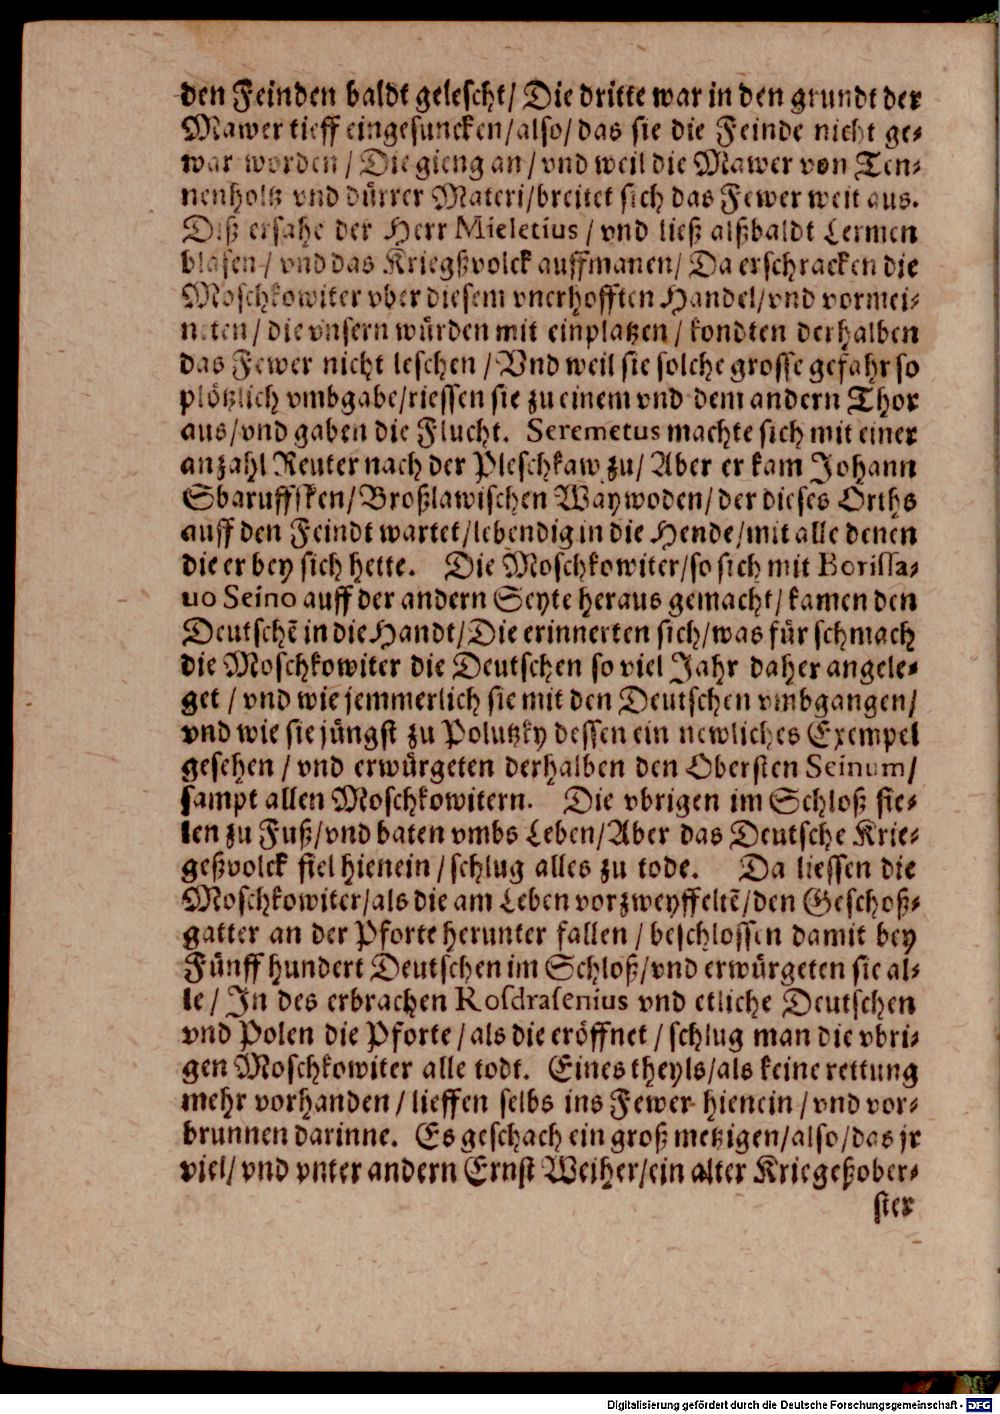 den Feinden baldt gelescht/ Die dritte war in den grundt der
Mawer tieff eingesuncken/also/das sie die Feinde nicht ge-
war worden / Die gieng an / vnd weil die Mawer von Ten-
nenholtz vnd dürrer Materi/breitet sich das Fewer weit aus.
Diß ersahe der Herr Mieletius / vnd ließ alßbaldt Lermen
blasen / vnd das Kriegßvolck auffmanen/ Da erschracken die
Moschkowiter vber diesem vnerhofften Handel/vnd vormei-
neten / die vnsern würden mit einplatzen / kondten derhalben
das Fewer nicht leschen / Vnd weil sie solche grosse gefahr so
plötzlich vmbgabe/riessen sie zu einem vnd dem andern Thor
aus/vnd gaben die Flucht. Seremetus machte sich mit einer
anzahl Reuter nach der Pleschkaw zu/ Aber er kam Johann
Sbaruffsken/Broßlawischen Waywoden/der dieses Orths
auff den Feindt wartet/lebendig in die Hende/mit alle denen
die er bey sich hette. Die Moschkowiter/so sich mit Borissa-
uo Seino auff der andern Seyte heraus gemacht/ kamen den
Deutschē in die Handt/Die erinnerten sich/was für schmach
die Moschkowiter die Deutschen so viel Jahr daher angele-
get / vnd wie jemmerlich sie mit den Deutschen vmbgangen/
vnd wie sie jüngst zu Polutzky dessen ein newliches Exempel
gesehen / vnd erwürgeten derhalben den Obersten Seinum/
sampt allen Moschkowitern. Die vbrigen im Schloß fie-
len zu Fuß/vnd baten vmbs Leben/Aber das Deutsche Krie-
geßvolck fiel hienein / schlug alles zu tode. Da liessen die
Moschkowiter/als die am Leben vorzweyffeltē/den Geschoß-
gatter an der Pforte herunter fallen / beschlossen damit bey
Fünff hundert Deutschen im Schloß/vnd erwürgeten sie al-
le / In des erbrachen Rosdrasenius vnd etliche Deutschen
vnd Polen die Pforte / als die eröffnet / schlug man die vbri-
gen Moschkowiter alle todt. Eines theyls/als keine rettung
mehr vorhanden / lieffen selbs ins Fewer hienein / vnd vor-
brunnen darinne. Es geschach ein groß metzigen/also/das jr
viel/ vnd vnter andern Ernst Weiher/ein alter Kriegeßober-
ster
Digitalisierung gefördert durch die Deutsche Forschungsgemeinschaft - DFG